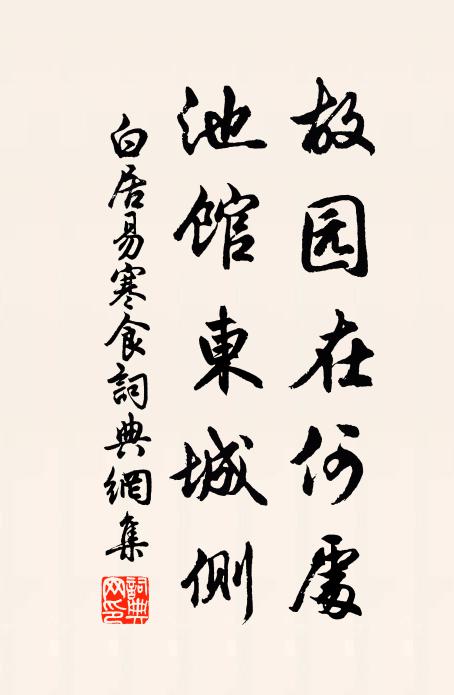 故园在何處
池馆東城側
白居易寒食詞典網集
詞典网印